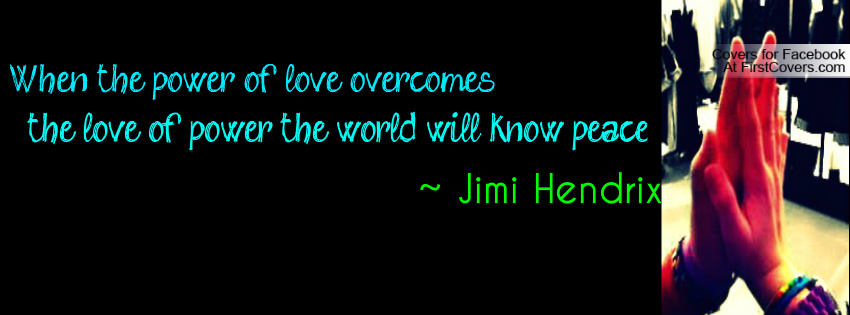 When the power of love overcomes
the love of power the world will know peace
~ Jimi Hendrix
Covers for Facebook
At FirstCovers.com